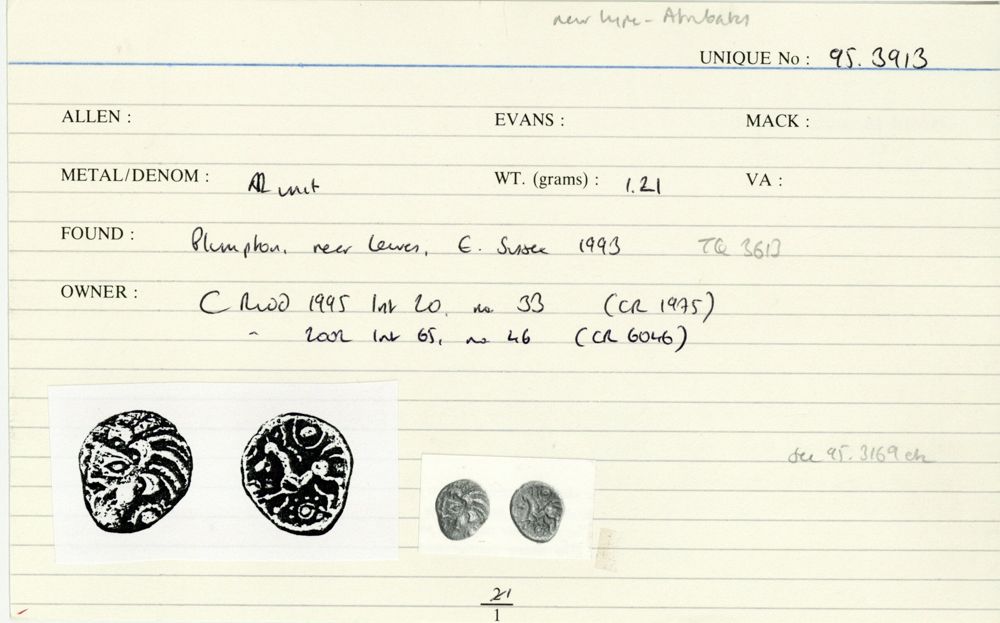 new type - Atrebates
UNIQUE No : 95.3913
ALLEN : EVANS : MACK :
METAL/DENOM : AR unit WT. (grams) : 1.21 VA :
FOUND : Plumpton, near Lewes, E. Sussex 1993 TQ 3613
OWNER : C Rudd 1995 list 20, no. 33 (CR 1975)
" 2002 list 65, no 46 (CR 6046)
see 95.3169 etc
21
1